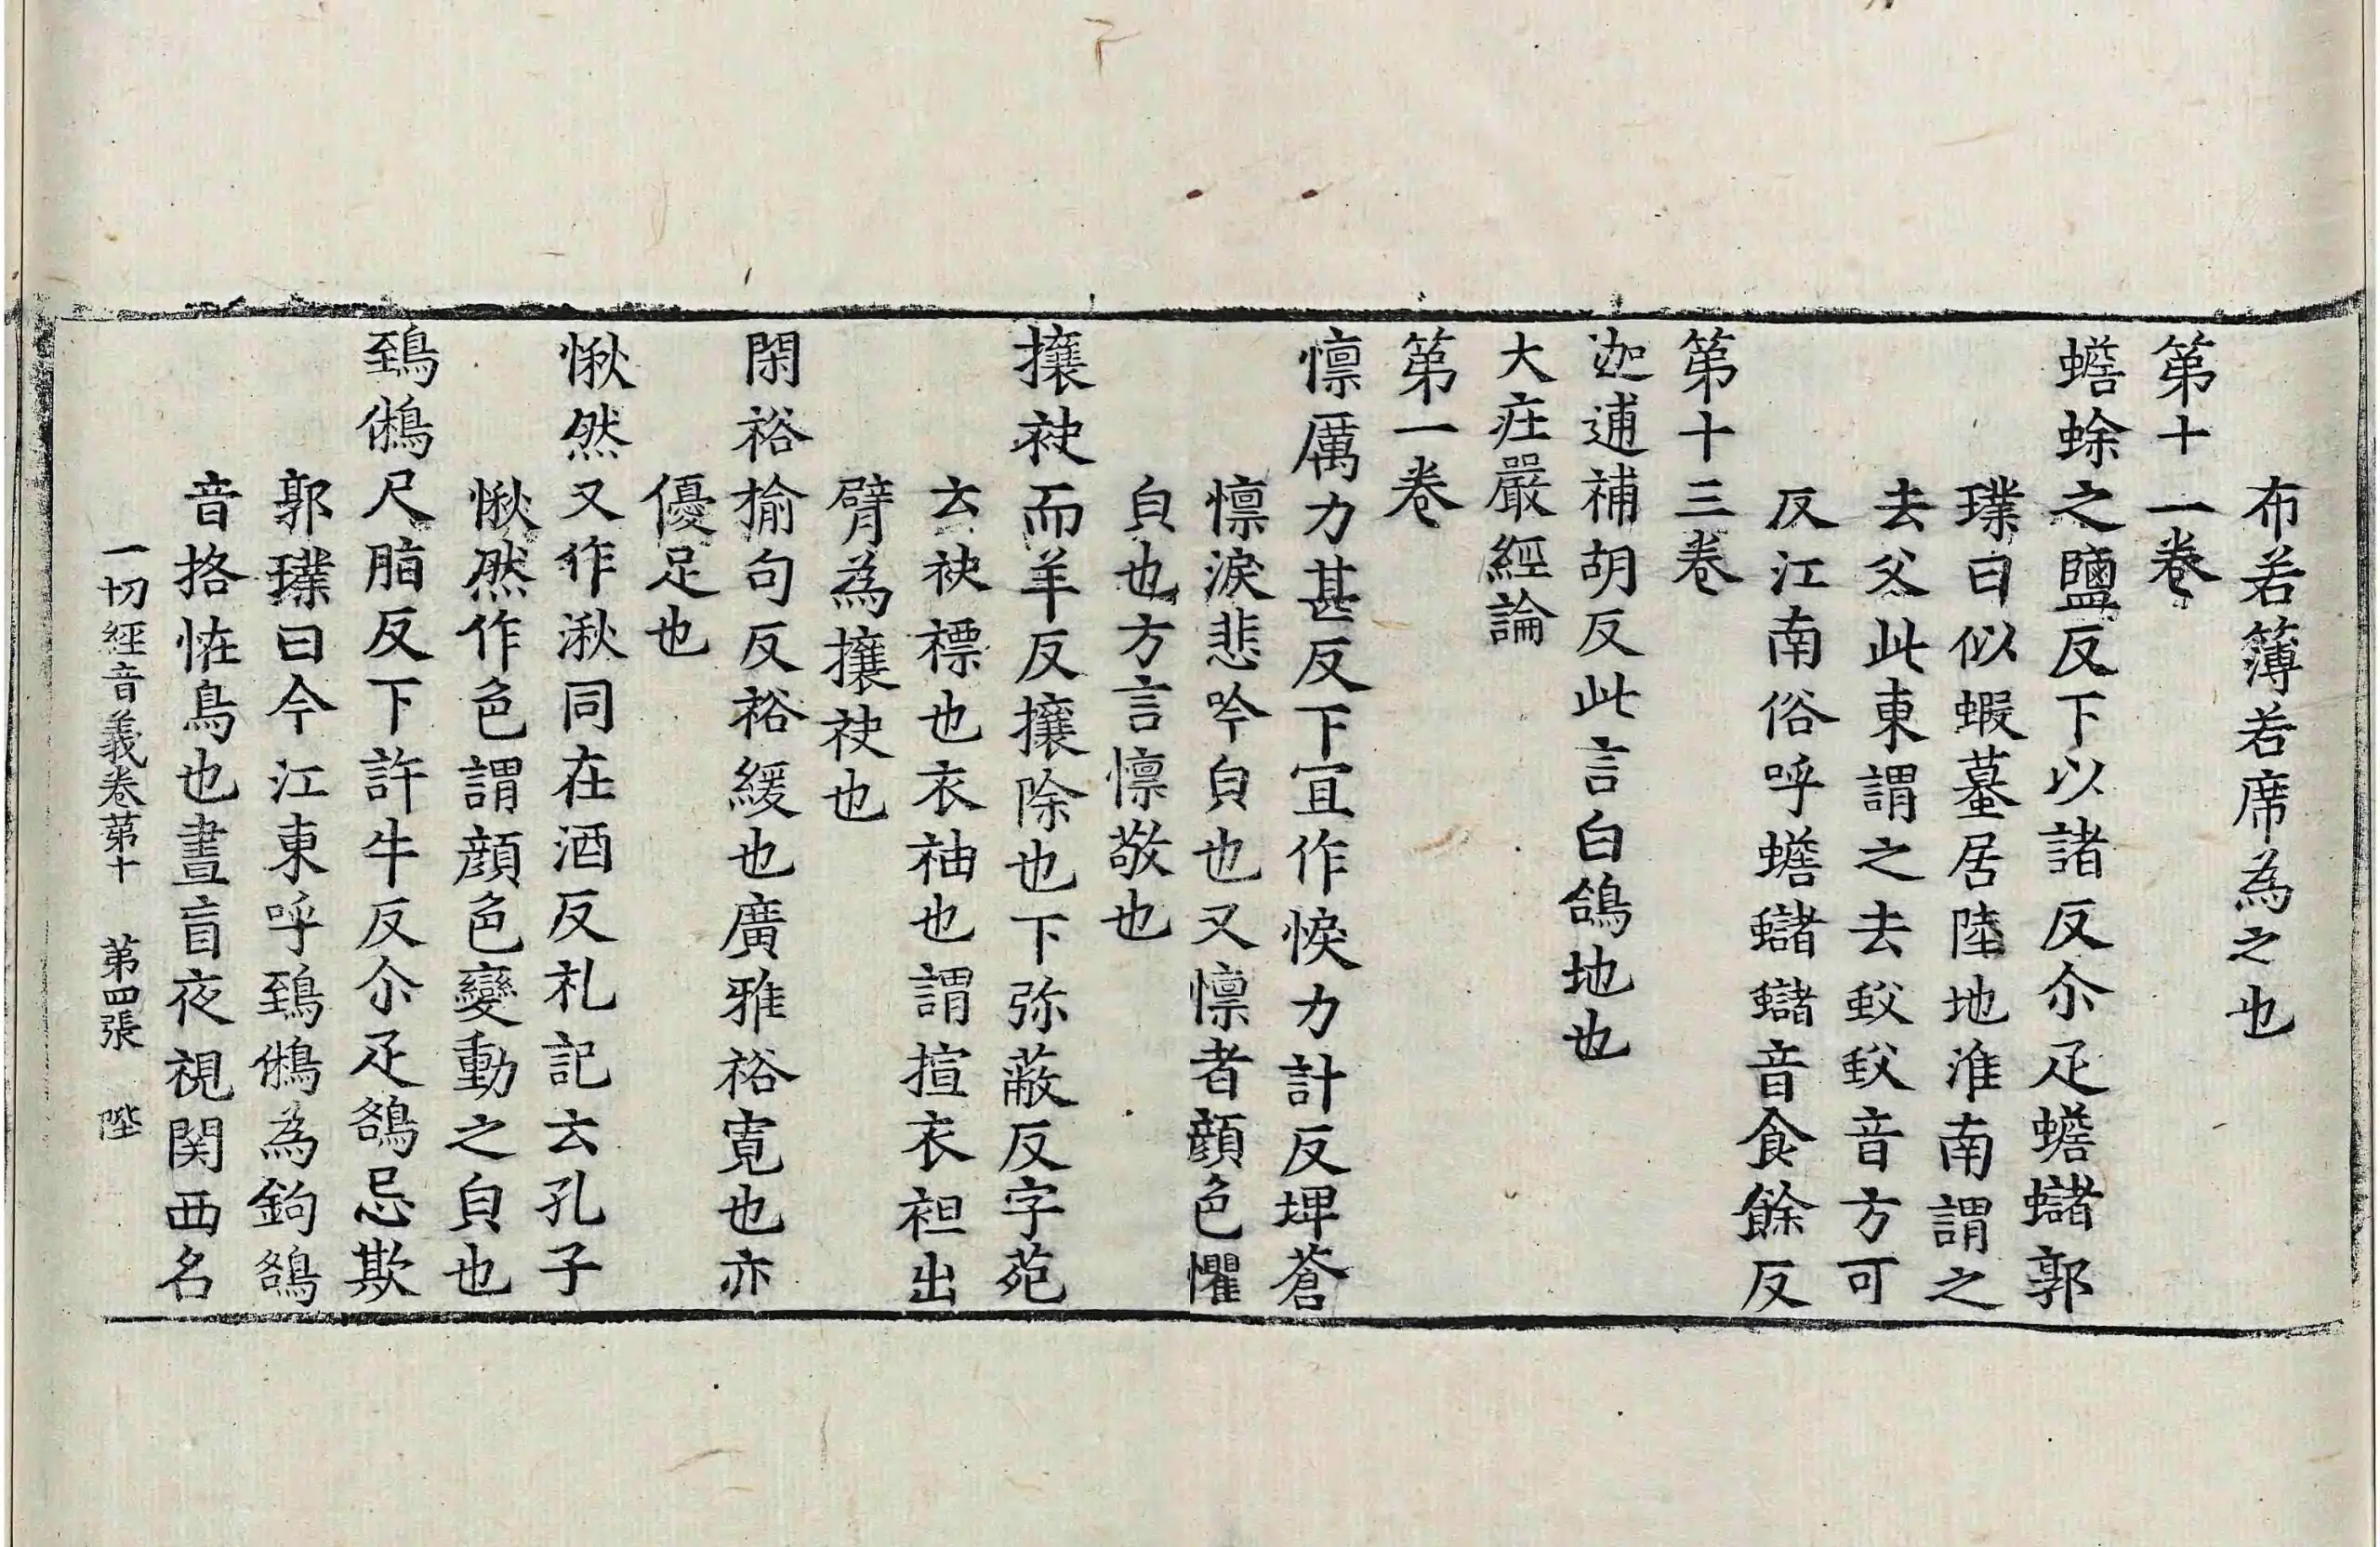 布若簿若席為之也
第十一卷
蟾蜍之鹽反下以諸反尒疋蟾蠩郭
璞曰似蝦蟇居陸地淮南謂之
去父此東謂之去䖣䖣音方可
反江南俗呼蟾蠩蠩音食餘反
第十三卷
迦逋補胡反此言白鴿地也
大庄嚴經論
第一卷
懍厲力甚反下宜作悷力計反埤蒼
懍淚悲吟皃也又懍者顔色懼
皃也方言懍敬也
攘袂而羊反攘除也下弥蔽反字苑
云袂褾也衣袖也謂揎衣袒出
臂為攘袂也
閑裕揄句反裕緩也廣雅裕寛也亦
優足也
愀然又作湫同在酒反礼記云孔子
愀然作色謂顔色變動之皃也
鵄鵂尺脂反下許牛反尒疋鵅忌欺
郭璞曰今江東呼鵄鵂為鉤鵅
音挌恠鳥也晝盲夜視関西名
一切經音義卷苐十　苐四張　陛